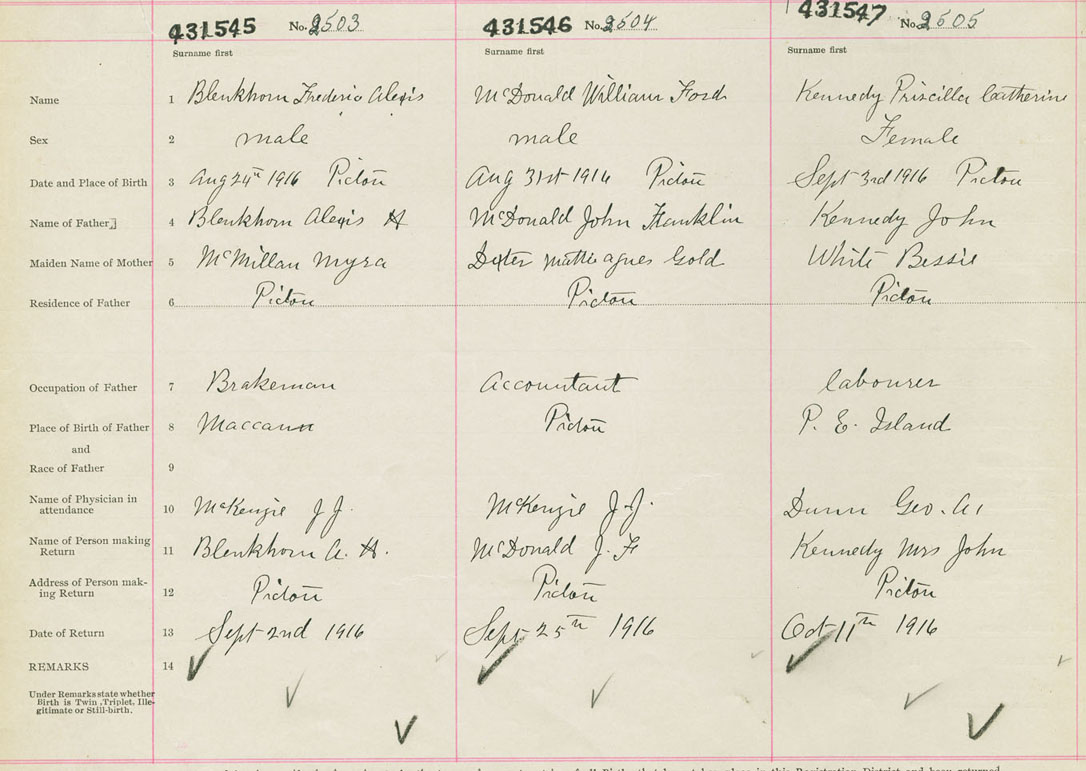 431545 No. 2503 431546 No. 2504 431547 No. 2505
Surname first Surname first Surname first
Name 1 Blenkhorn Frederic Alexis McDonald William Ford Kennedy Priscilla Catherine
Sex 2 male male Female
Date and Place of Birth 3 Aug 24th 1916 Pictou Aug 31st 1916 Pictou Sept 3rd 1916 Pictou
Name of Father 4 Blenkhorn Alexis H McDonald John Franklin Kennedy John
Maiden Name of Mother 5 McMillan Myra mattie agnes Gold White Bessie
Residence of Father 6 Pictou Pictou Pictou
Occupation of Father 7 Brakeman Accountant labourer
Place of Birth of Father 8 Maccann Pictou P. E. Island
and
Race of Father 9
Name of Physician in
attendance 10 McKenzie J J. McKenzie J. J. Dunn Geo. A.
Name of Person making
Return 11 Blenkhorn A. H. McDonald J. F Kennedy Mrs John
Address of Person mak-
ing Return 12 Pictou Pictou Pictou
Date of Return 13 Sept 2nd 1916 Sept 25th 1916 Oct 11th 1916
REMARKS 14
Under Remarks state whether
Birth is Twin, Triplet, Ille-
gitimate or Still-birth.